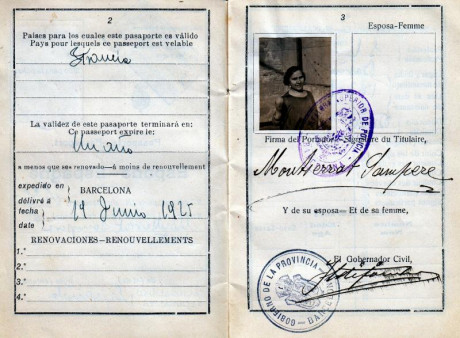 2
Países para los cuales este pasaporte es válido
Pays pour lesquels ce passeport est velable
Francia
La validez de este pasaporte terminará en:
Ce passeport expire le:
Un año
a menos que sea renovado—à moins de renouvellement
expedido en
délivré à
BARCELONA
fecha
date
19 Junio 1925
RENOVACIONES—RENOUVELLEMENTS
1.º
2.º
3.º
4.º
3
Esposa-Femme
Firma del Portador Signature du Titulaire,
Montserrat Sampere
Y de su esposa—Et de sa femme,
El Gobernador Civil,
GOBIERNO DE LA PROVINCIA